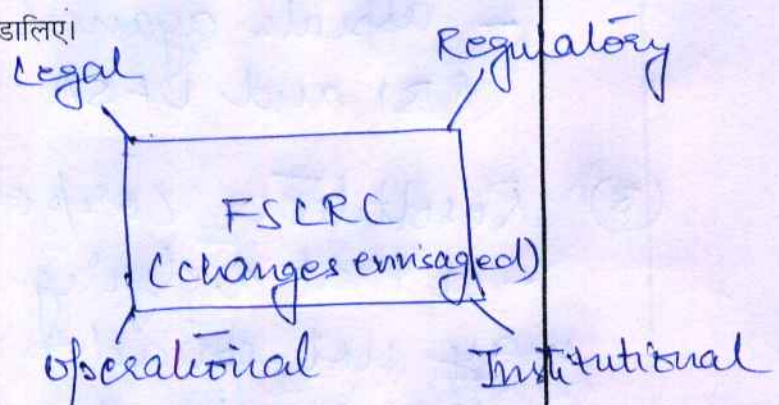 डालिए।
Legal Regulatory
FSLRC
(changes envisaged)
operational Institutional